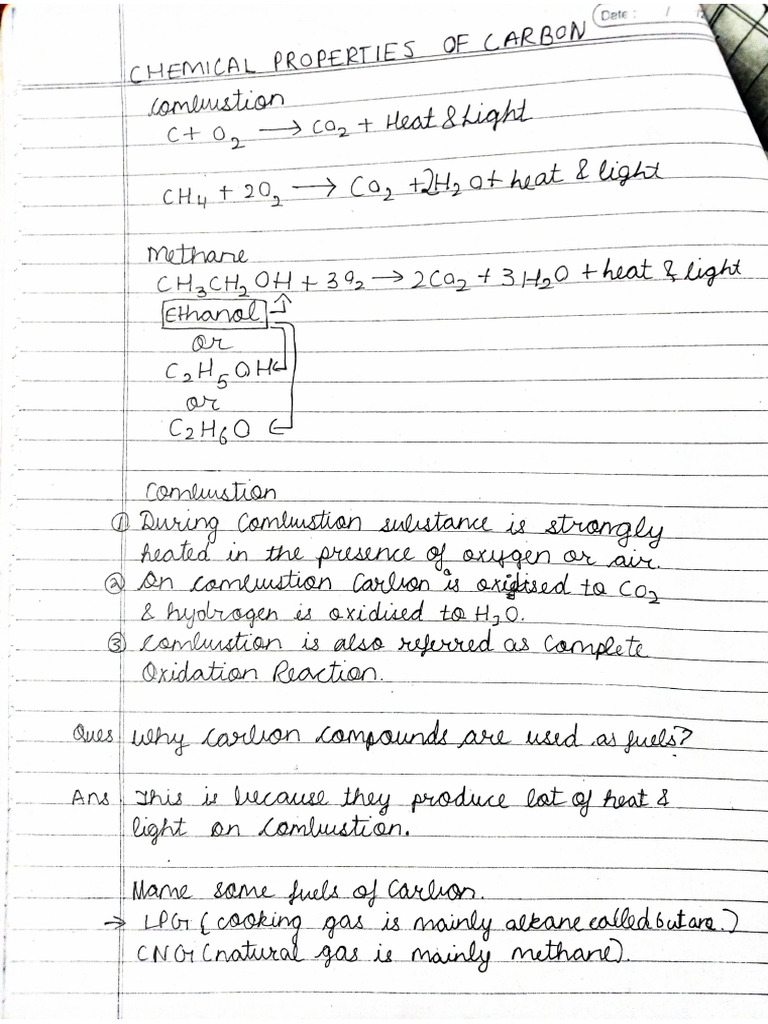 Date : / 
CHEMICAL PROPERTIES OF CARBON
Combustion
C + O₂ → CO₂ + Heat & Light
CH₄ + 2O₂ → CO₂ + 2H₂O + heat & light
Methane
CH₃CH₂OH + 3O₂ → 2CO₂ + 3H₂O + heat & light
Ethanol
or
C₂H₅OH
or
C₂H₆O
Combustion
① During Combustion substance is strongly
heated in the presence of oxygen or air.
② On combustion Carbon is oxidised to CO₂
& hydrogen is oxidised to H₂O.
③ Combustion is also referred as Complete
Oxidation Reaction.
Ques Why carbon compounds are used as fuels?
Ans This is because they produce lot of heat &
light on combustion.
Name some fuels of Carbon.
→ LPG (cooking gas is mainly alkane called butane.)
CNG (natural gas is mainly methane).